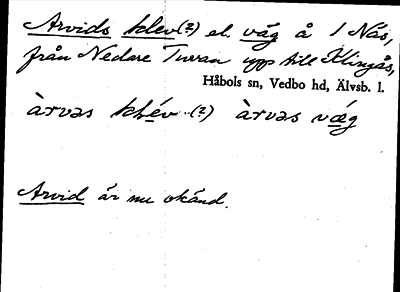 Arvids klev(?) el. väg å 1 Näs,
från Nedre Turran upp till Klingås,
Håbols sn, Vedbo hd, Älvsb. l.
àrvəs klév (?) àrvəs væg
Arvid är nu okänd.